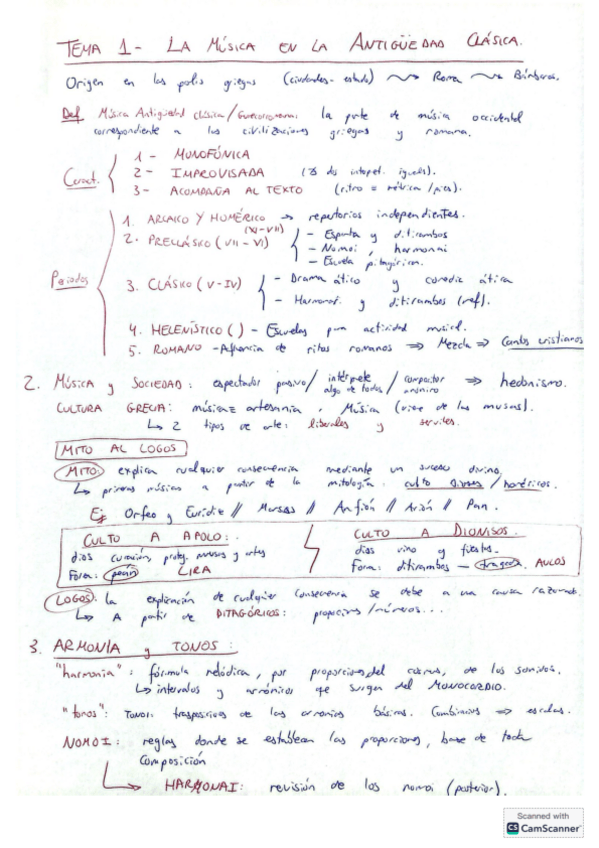 TEMA 1 - LA MÚSICA EN LA ANTIGÜEDAD CLÁSICA.
Origen en las polis griegas (ciudades-estado) → Roma → Bárbaros.
Def Música Antigüedad clásica/Grecorromana: la parte de música occidental
correspondiente a las civilizaciones griegas y romana.
Caract.
1 - MONOFÓNICA
2 - IMPROVISADA (∄ dos interpret. iguales).
3 - ACOMPAÑA AL TEXTO (ritmo = métrica/pies).
Periodos
1. ARCAICO Y HOMÉRICO → repertorios independientes.
(XI-VII)
2. PRECLÁSICO (VII-VI) - Esparta y ditirambos
- Nomoi, harmoniai
- Escuela pitagórica.
3. CLÁSICO (V-IV) - Drama ático y comedia ática
- Harmonai y ditirambos (ref).
4. HELENÍSTICO ( ) - Escuelas para actividad musical.
5. ROMANO - de ritos romanos ⇒ Mezcla ⇒ Cantos cristianos
2. Música y SOCIEDAD: espectador pasivo/ intérprete algo de todos/ compositor anónimo ⇒ hedonismo.
CULTURA GRECIA: música = artesanía, Música (viene de las musas).
↳ 2 tipos de arte: liberales y serviles.
MITO AL LOGOS
MITO: explica cualquier consecuencia mediante un suceso divino.
↳ primeros músicos a partir de la mitología: culto dioses/heroicos.
Ej Orfeo y Eurídice // Marsias // Anfión // Arión // Pan.
CULTO A APOLO:
dios curación, proteg. musas y artes
Forma: peán LIRA
CULTO A DIONISOS.
dios vino y fiestas.
Forma: ditirambos - tragedia. AULOS
LOGOS: la explicación de cualquier consecuencia se debe a una causa razonada.
↳ A partir de PITAGÓRICOS: proporciones/números...
3. ARMONÍA y TONOS:
"harmonia": fórmula melódica, por proporciones del cosmos, de los sonidos.
↳ intervalos y armónicos que surgen del MONOCORDIO.
"tonos": Tonoi: trasposiciones de las armonías básicas. Combinarlos ⇒ escalas.
NOMOI: reglas donde se establecen las proporciones, base de toda
composición
↳ HARMONAI: revisión de los nomoi (posterior).
Scanned with
CS CamScanner